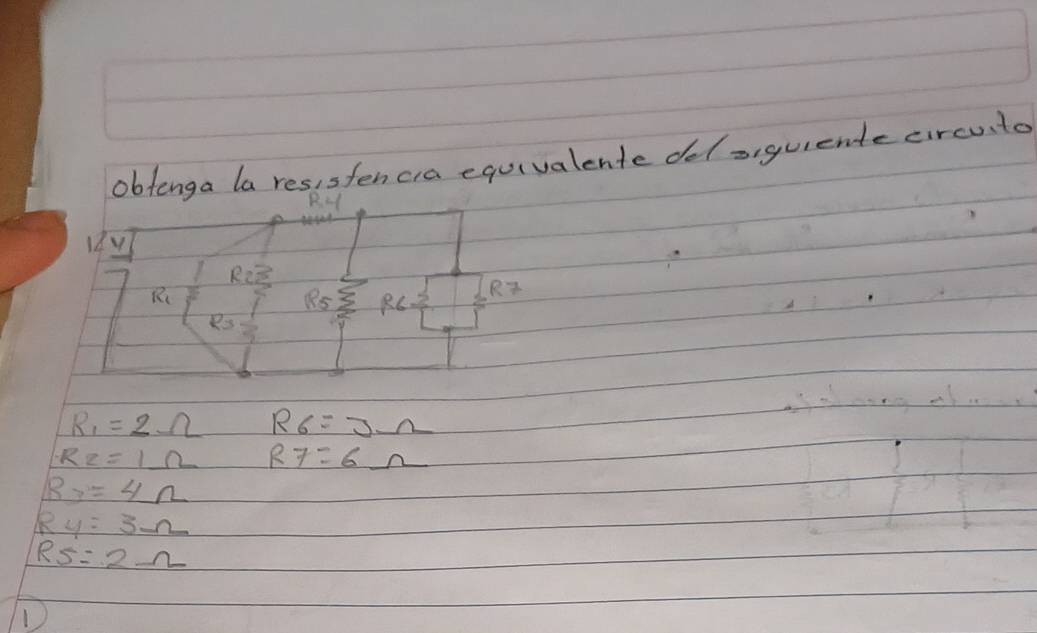 obtenga la resistencia equivalente del siguiente circuito
R4
12V
R2
R1
R5
R6
R7
R3
R1 = 2 Ω R6 = 3 Ω
R2 = 1 Ω R7 = 6 Ω
R3 = 4 Ω
R4 = 3 Ω
R5 = 2 Ω
1